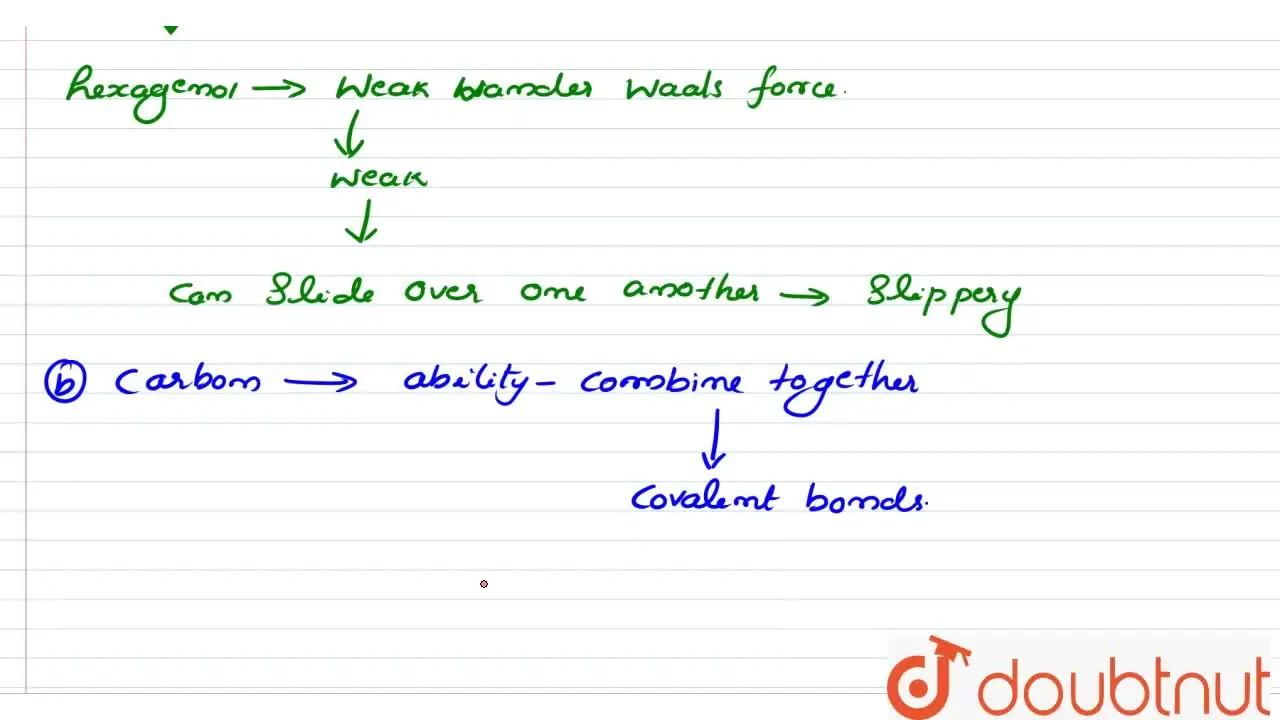 hexagenol → Weak wander Waals force.
↓
Weak
↓
Can Slide over one another → Slippery
(b) Carbon → ability - combine together
↓
Covalent bonds.
doubtnut